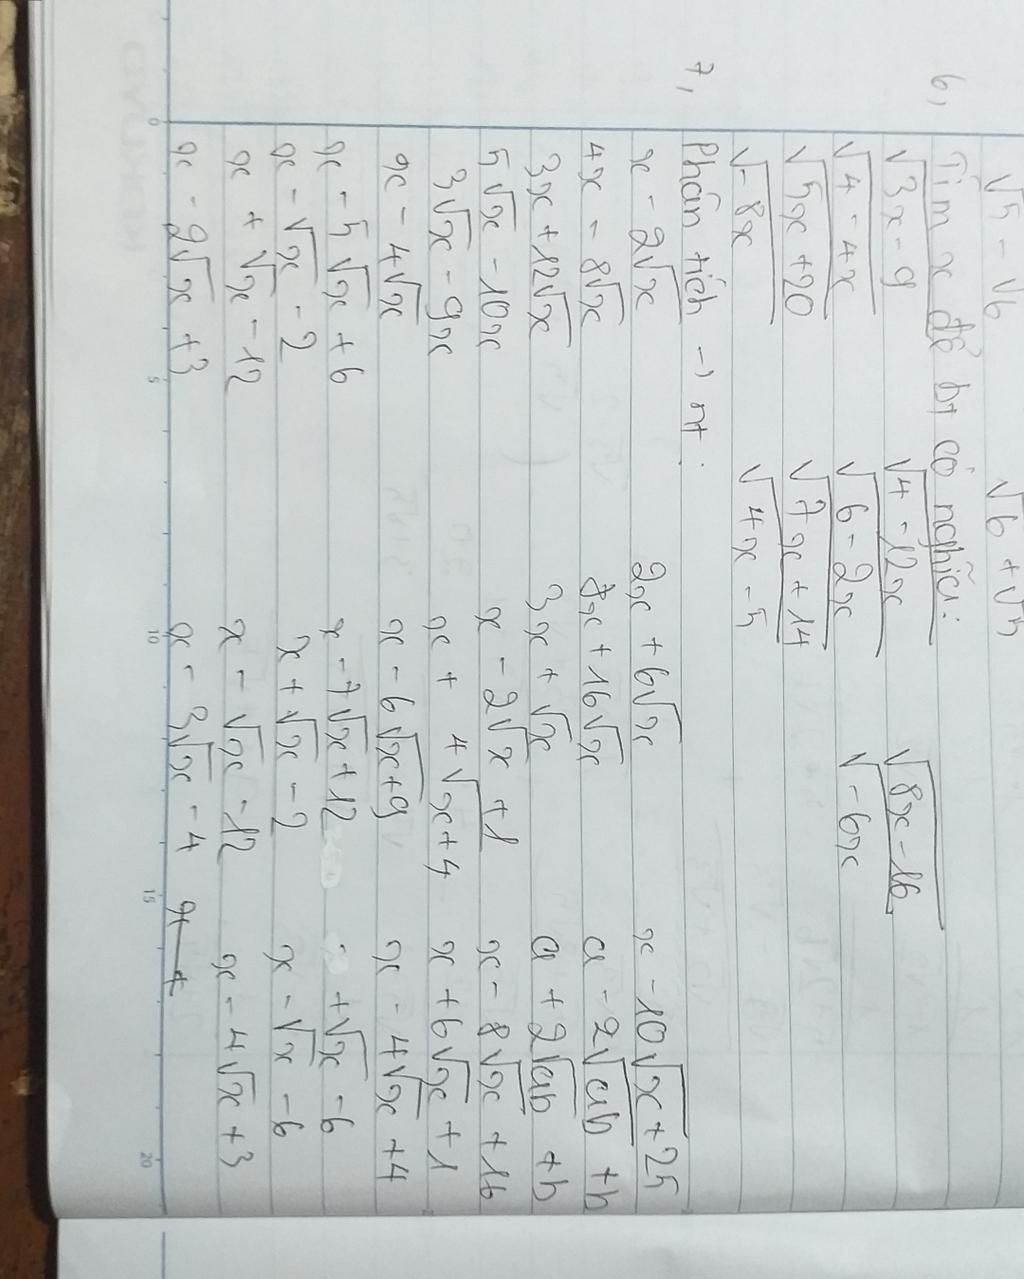 √5 - √6 √6 + √5
6, Tìm x để bt có nghĩa:
√3x - 9 √4 - 12x √8x - 16
√4 - 4x √6 - 2x √-6x
√5x + 20 √7x + 14
√-8x √4x - 5
7, Phân tích → nt:
x - 2√x 2x + 6√x x - 10√x + 25
4x - 8√x 8x + 16√x a - 2√ab + b
3x + 12√x 3x + √x a + 2√ab + b
5√x - 10x x - 2√x + 1 x - 8√x + 16
3√x - 9x x + 4√x + 4 x + 6√x + 1
x - 4√x x - 6√x + 9 x - 4√x + 4
x - 5√x + 6 x - 7√x + 12 + √x - 6
x - √x - 2 x + √x - 2 x - √x - 6
x + √x - 12 x - √x - 12 x - 4√x + 3
x - 2√x + 3 x - 3√x - 4
0 5 10 15 20